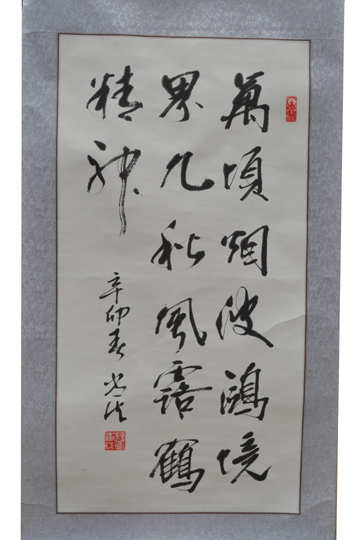 萬頃烟波鴻境
界九秋風露鶴
精神
辛卯春